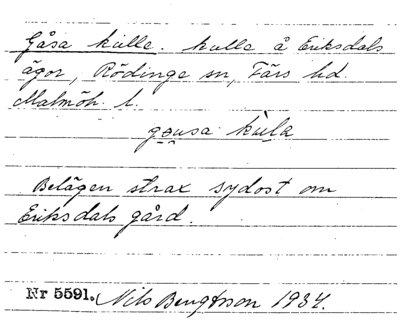 Gåsa kulle. kulle å Eriksdals
ägor, Rödinge sn, Färs hd.
Malmöh. l.
gousa kùla
Belägen strax sydost om
Eriksdals gård.
Nr 5591. Nils Bengtsson 1934.